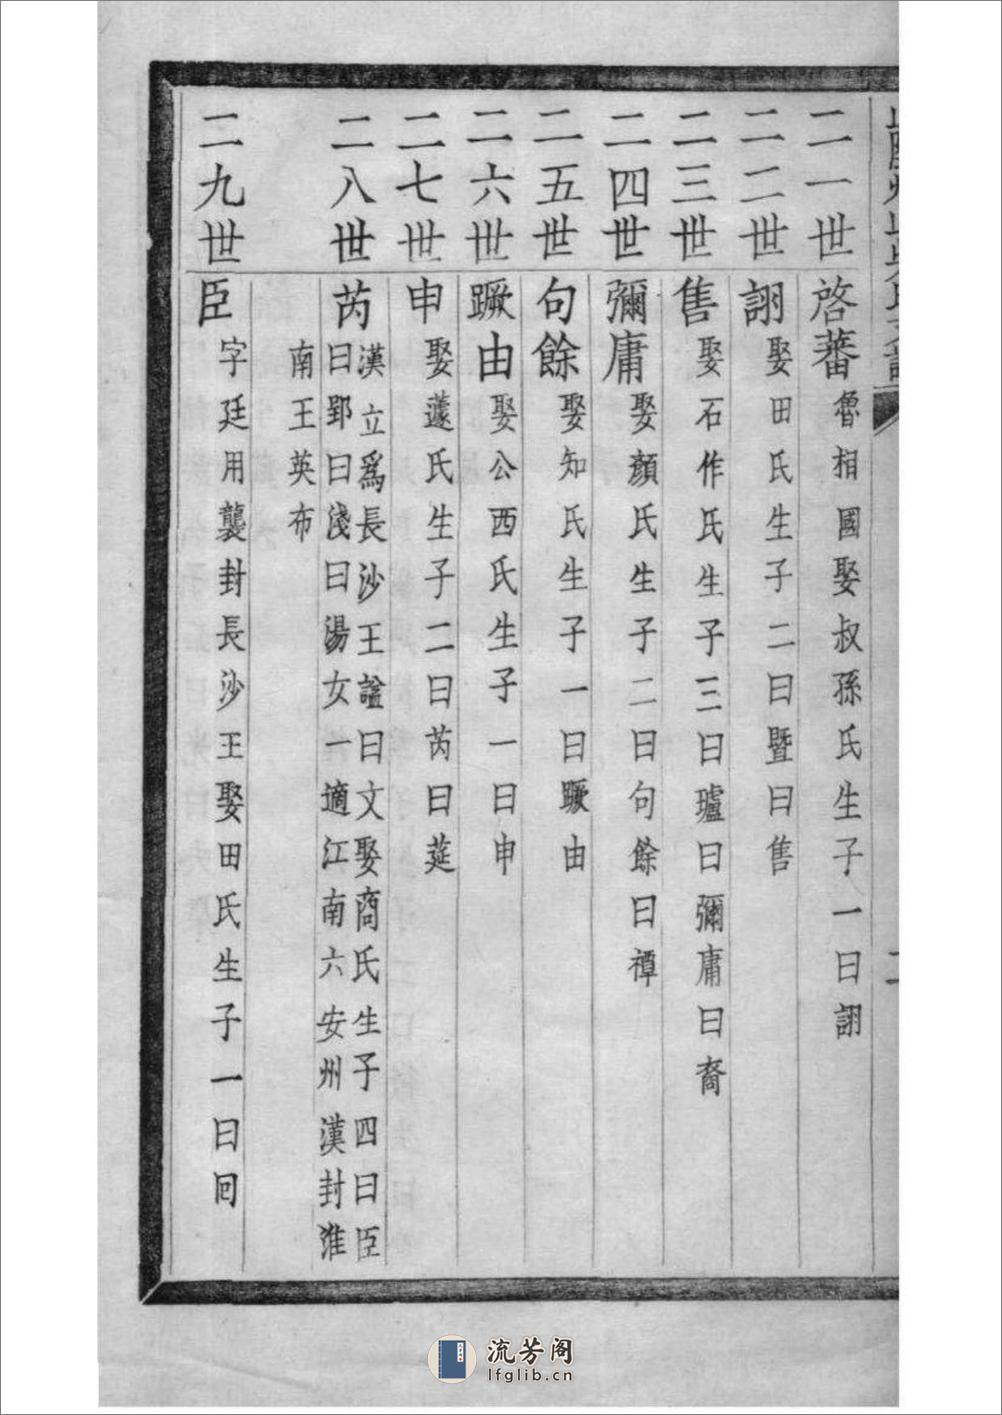 二一世 啓蕃 魯相國娶叔孫氏生子一曰詡
二二世 詡 娶田氏生子二曰暨曰售
二三世 售 娶石作氏生子三曰瓐曰彌庸曰裔
二四世 彌庸 娶顏氏生子二曰句餘曰禫
二五世 句餘 娶知氏生子一曰蹶由
二六世 蹶由 娶公西氏生子一曰申
二七世 申 娶蘧氏生子二曰芮曰莚
二八世 芮 漢立爲長沙王諡曰文娶商氏生子四曰臣
曰郢曰淺曰湯女一適江南六安州漢封淮
南王英布
二九世 臣 字廷用襲封長沙王娶田氏生子一曰回
流芳阁
lfglib.cn